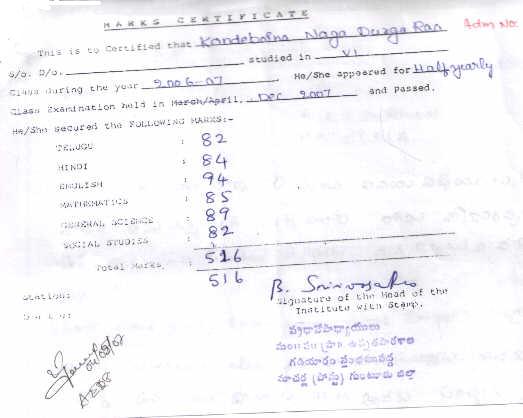 MARKS CERTIFICATE
Adm No:
This is to Certified that Kandeboina Naga Durga Rao
S/o. D/o. studied in VI
Class during the year 2006-07 He/She appeared for Half yearly
Class Examination held in March/April, Dec 2007 and Passed.
He/She secured the FOLLOWING MARKS:-
TELUGU : 82
HINDI : 84
ENGLISH : 94
MATHEMATICS : 85
GENERAL SCIENCE : 89
SOCIAL STUDIES : 82
Total Marks : 516
516
B. Srinivasa Rao
Station:
Signature of the Head of the
Institute with Stamp.
Date:
ప్రధానోపాధ్యాయులు
మండల ప్రా. ఉన్నత పాఠశాల
మాచర్ల (పోస్టు) గుంటూరు జిల్లా